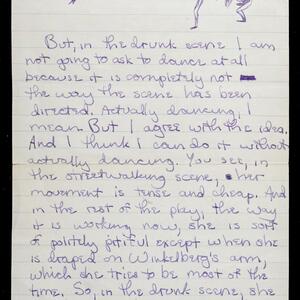 But, in the drunk scene I am
not going to ask to dance at all
because it is completely not
the way the scene has been
directed. Actually dancing, I
mean. But I agree with the idea.
And I think I can do it without
actually dancing. You see, in
the streetwalking scene, her
movement is tense and cheap. And
in the rest of the play, the way
it is working now, she is sort
of politely pitiful except when she
is draped on Winkelberg's arm,
which she tries to be most of the
time. So, in the drunk scene, she